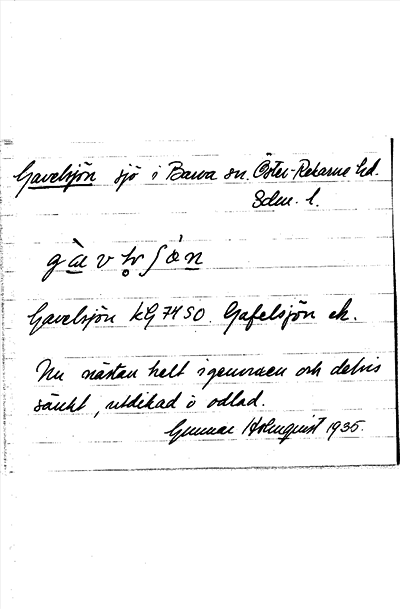 Gavelsjön sjö i Barva sn. Öster-Rekarne hd.
Sdm. l.
Gavelsjön kG 74 SO. Gafelsjön ek.
Nu nästan helt igenvuxen och delvis
sänkt, utdikad o odlad.
Gunnar Holmquist 1935.